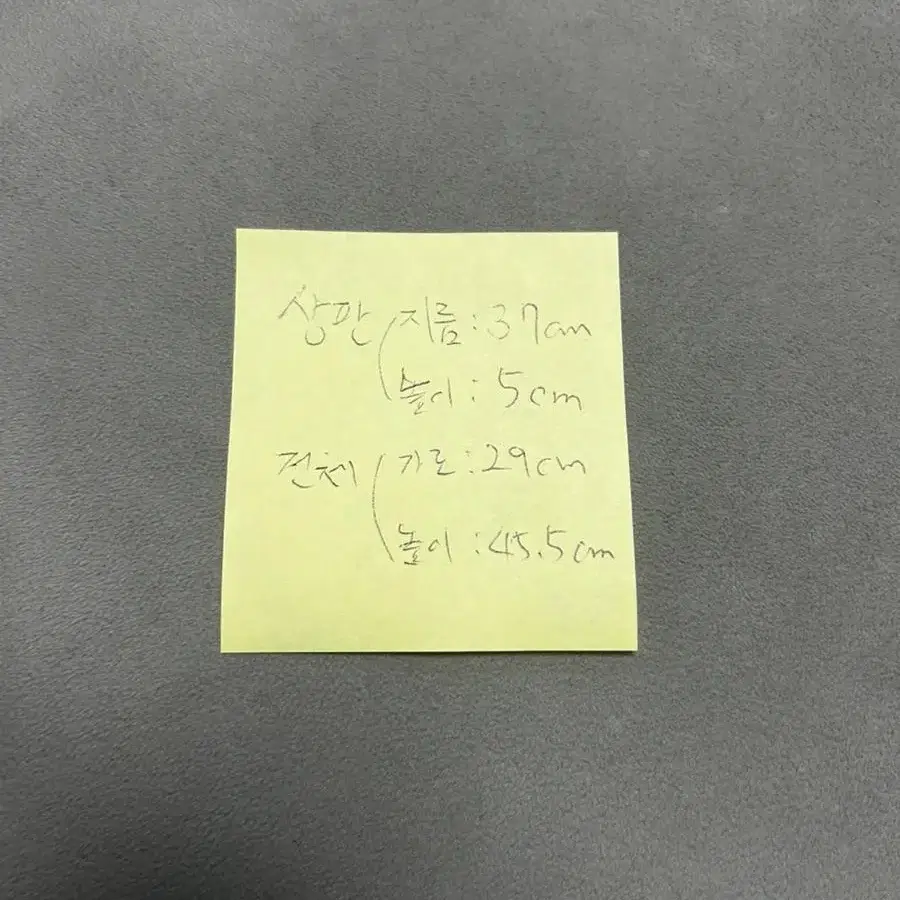 상판 ( 지름 : 37cm
높이 : 5cm
전체 ( 가로 : 29cm
높이 : 45.5cm